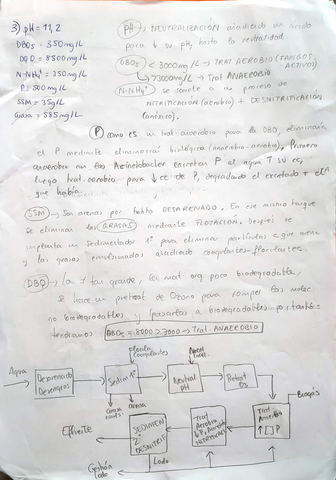 3) pH = 11,2
DBO5 = 350 mg/L
DQO = 8500 mg/L
N-NH4+ = 350 mg/L
P = 500 mg/L
SSM = 35 g/L
Grasa = 585 mg/L
pH → NEUTRALIZACIÓN añadiendo un ácido
para ↓ su pH, hasta la neutralidad
DBO5 < 3000 mg/L → TRAT AEROBIO (FANGOS ACTIVOS)
Trat ANAEROBIO
N-NH4+ se somete a un proceso de
NITRIFICACIÓN (aerobio) + DESNITRIFICACIÓN
(anóxico).
P como es un trat anaerobio para la DBO, eliminamos
el P mediante eliminación biológica (anaerobia-aerobia). Primero
anaerobio
excretan P al agua ↑ su
luego trat. aerobio para ↓ de P, degradando el excretado + el
que había
SSM → Son arenas por tanto DESARENADO. En ese mismo tanque
se eliminan las GRASAS mediante FLOTACIÓN. Después se
implanta un Sedimentador 1º para eliminar partículas
y las grasas emulsionadas añadiendo coagulantes-floculantes.
DQO → tan grande, mat. org. poco biodegradable,
se hace un pretrat de Ozono para romper las molec
no biodegradables y pasarlas a biodegradables por tanto
tendremos DBO5 = 8000 > 3000 → Trat ANAEROBIO
Agua
Desarenado
Desengras
Sedim 1º
Neutral
pH
O3
Biogás
Trat
Anaerobio
↑ [ ] P
Trat
Aerobio
↓ P
NITRIFICACIÓN
SEDIMEN
2º
DESNITRIF
Efluente
grasa
arena
Lodo
Gestión
Lodo